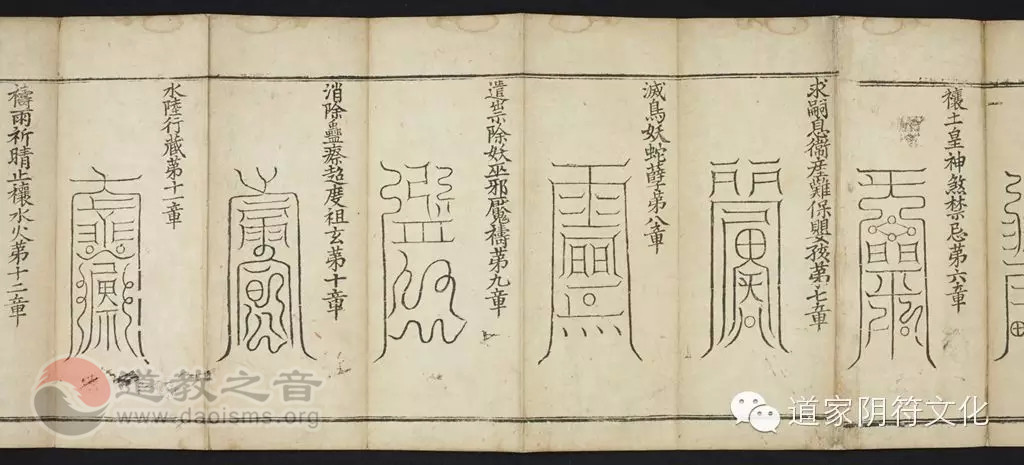 禳土皇神煞禁忌第六章
求嗣息衛產難保嬰孩第七章
滅鳥妖蛇孽第八章
遣祟除妖巫邪魘禱第九章
消除蠱瘵超度祖玄第十章
水陸行藏第十一章
禱雨祈晴止禳水火第十二章
道教之音
www.daoisms.org
道家阴符文化